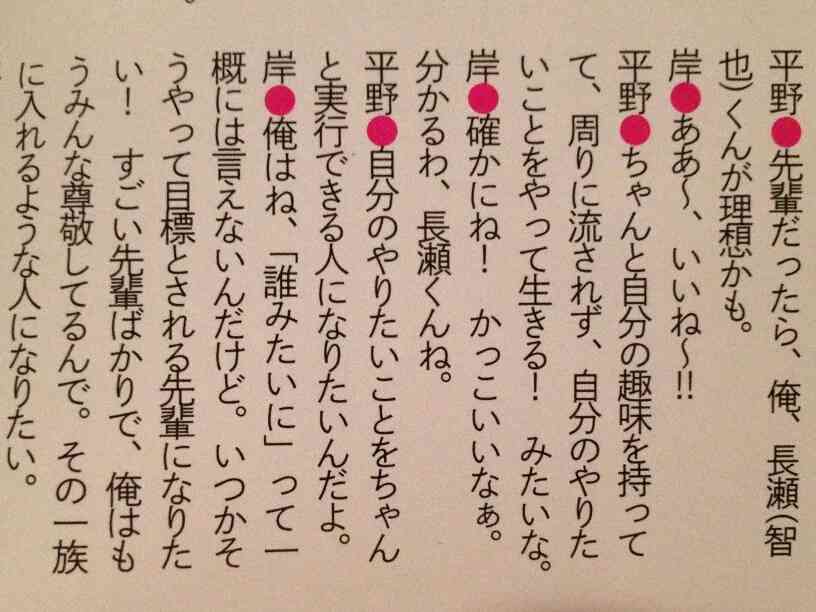 平野●先輩だったら、俺、長瀬(智
也)くんが理想かも。
岸●ああ〜、いいね〜!!
平野●ちゃんと自分の趣味を持って
て、周りに流されず、自分のやりた
いことをやって生きる! みたいな。
岸●確かにね! かっこいいなぁ。
分かるわ、長瀬くんね。
平野●自分のやりたいことをちゃん
と実行できる人になりたいんだよ。
岸●俺はね、「誰みたいに」って一
概には言えないんだけど。いつかそ
うやって目標とされる先輩になりた
い! すごい先輩ばかりで、俺はも
うみんな尊敬してるんで。その一族
に入れるような人になりたい。